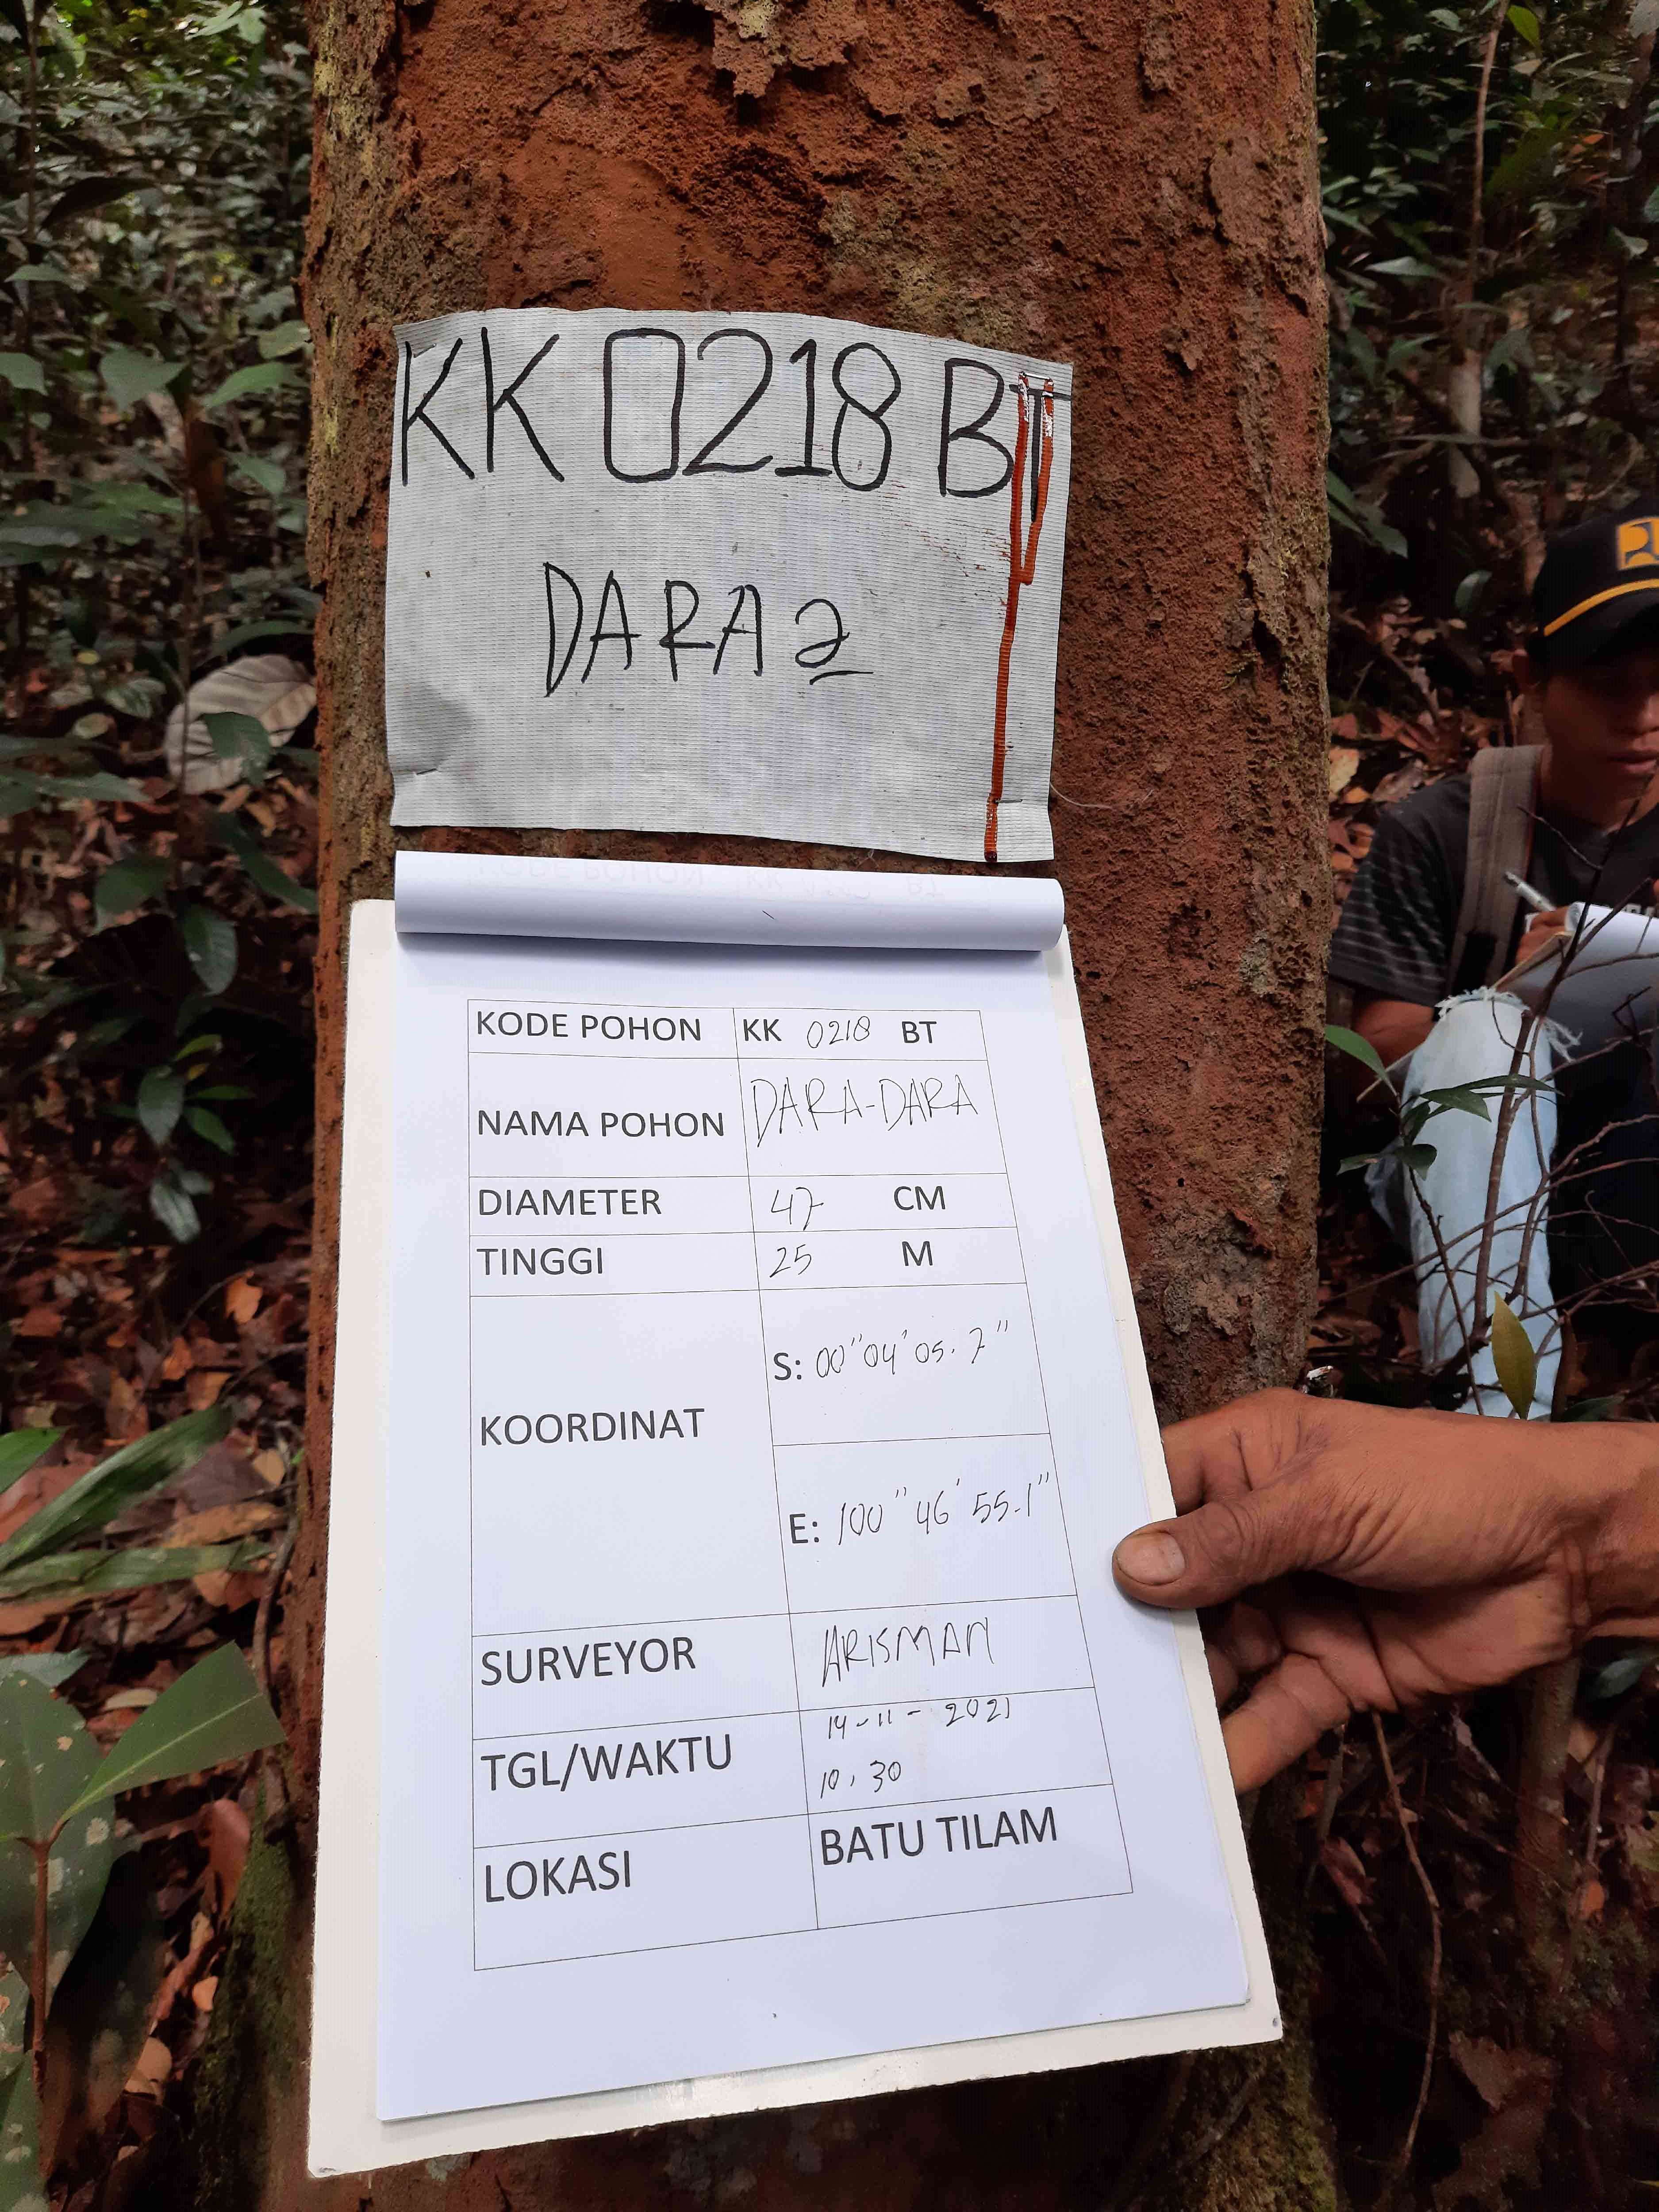 KK 0218 BT
DARA 2
KODE POHON KK 0218 BT
NAMA POHON DARA-DARA
DIAMETER 47 CM
TINGGI 25 M
KOORDINAT
S: 00" 04' 05.7"
E: 100" 46' 55.1"
SURVEYOR ARISMAN
TGL/WAKTU 14-11-2021
10.30
LOKASI BATU TILAM